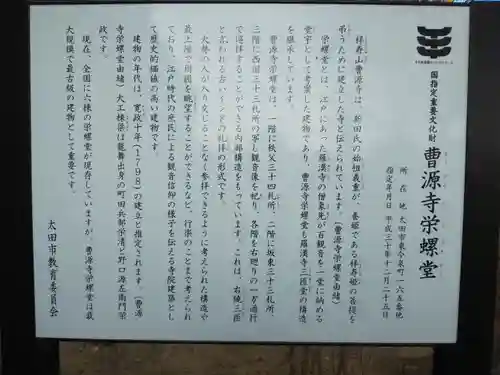 国指定重要文化財
曹源寺栄螺堂
所在地 太田市東今泉町一六五番地
指定年月日 平成三十年十二月二十五日
祥寿山曹源寺は、新田氏の始祖義重が、養姫である祥寿姫の菩提を
弔うために建立した寺と伝えられています。(曹源寺栄螺堂由緒)
栄螺堂とは、江戸にあった羅漢寺の僧象先が百観音を一堂に納める
堂宇として考案した建物であり、曹源寺栄螺堂も羅漢寺三匝堂の構造
を継承しています。
曹源寺栄螺堂は、一階に秩父三十四札所、二階に坂東三十三札所、
三階に西国三十三札所の写し観音像を祀り、各階を右回りの一方通行
で巡拝することができる内部構造をもっています。これは、右繞三匝
と言われる古いインドの礼拝の形式です。
大勢の人が入り交じることなく参拝できるように考えられた構造や
最上階で庭園を眺望することができるなど、行楽のことまで考えられ
ており、江戸時代の庶民による観音信仰の様子を伝える寺院建築とし
て歴史的価値の高い建物です。
建物の年代は、寛政十年(1798)の建立と推定されます。(曹源
寺栄螺堂由緒)大工棟梁は龍舞出身の町田兵部栄清と野口源左衛門栄
政です。
現在、全国に六棟の栄螺堂が現存していますが、曹源寺栄螺堂は最
大規模で最古級の建物として重要です。
太田市教育委員会